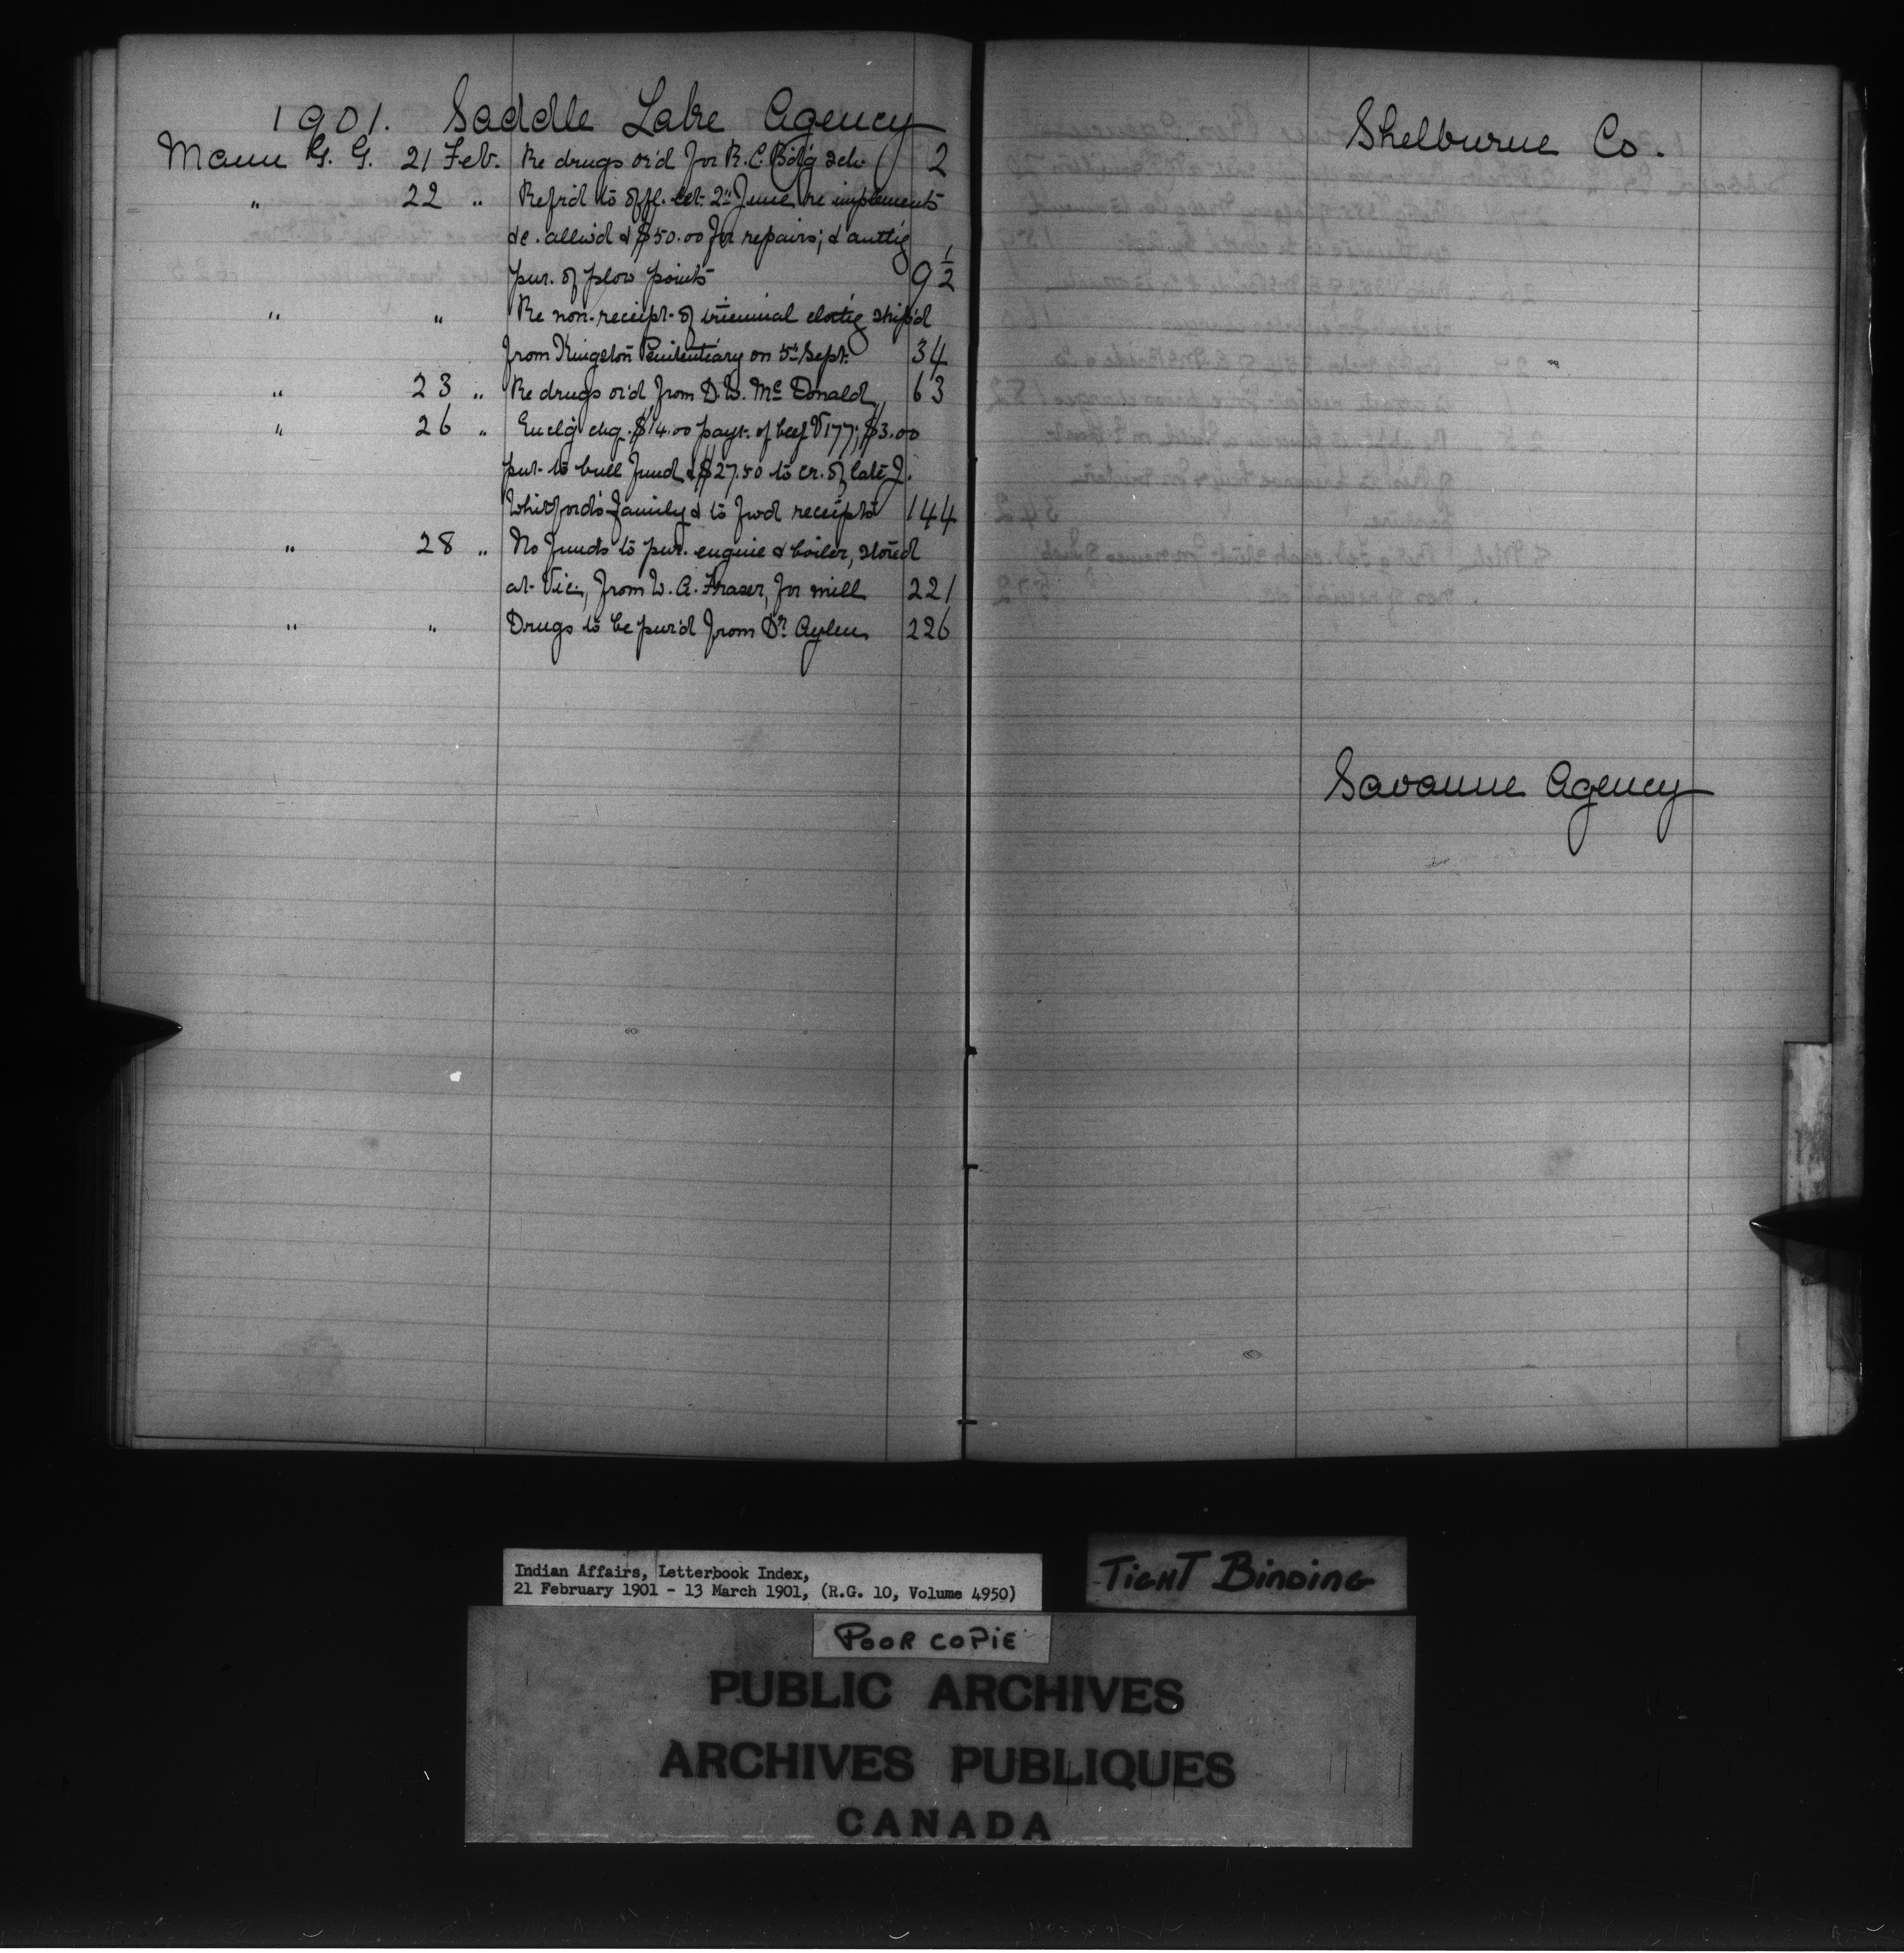 1901. Saddle Lake Agency
Mann G. G. 21 Feb. Re drugs or'd for R.C. Bd'g sch. 2
" 22 " Refr'd to offl. let. 2nd June re implements
&c. allw'd & $50.00 for repairs; & auth'g
pur. of plow points 9 1/2
" " Re non-receipt of triennial cloth'g ship'd
from Kingston Penitentiary on 5th Sept. 34
" 23 " Re drugs or'd from D.W. McDonald 63
" 26 " Encl'g chq. $14.00 payt. of beef V 177; $3.00
put to bull fund & $27.50 to cr. of late J.
Whitford's family & to fwd receipts 144
" 28 " No funds to pur. engine & boiler, stored
at Vic., from W. A. Fraser, for mill 221
" " Drugs to be pur'd from Dr. Aylen 226
Shelburne Co.
Savanne Agency
Indian Affairs, Letterbook Index,
21 February 1901 - 13 March 1901, (R.G. 10, Volume 4950)
TIGHT BINDING
POOR COPIE
PUBLIC ARCHIVES
ARCHIVES PUBLIQUES
CANADA